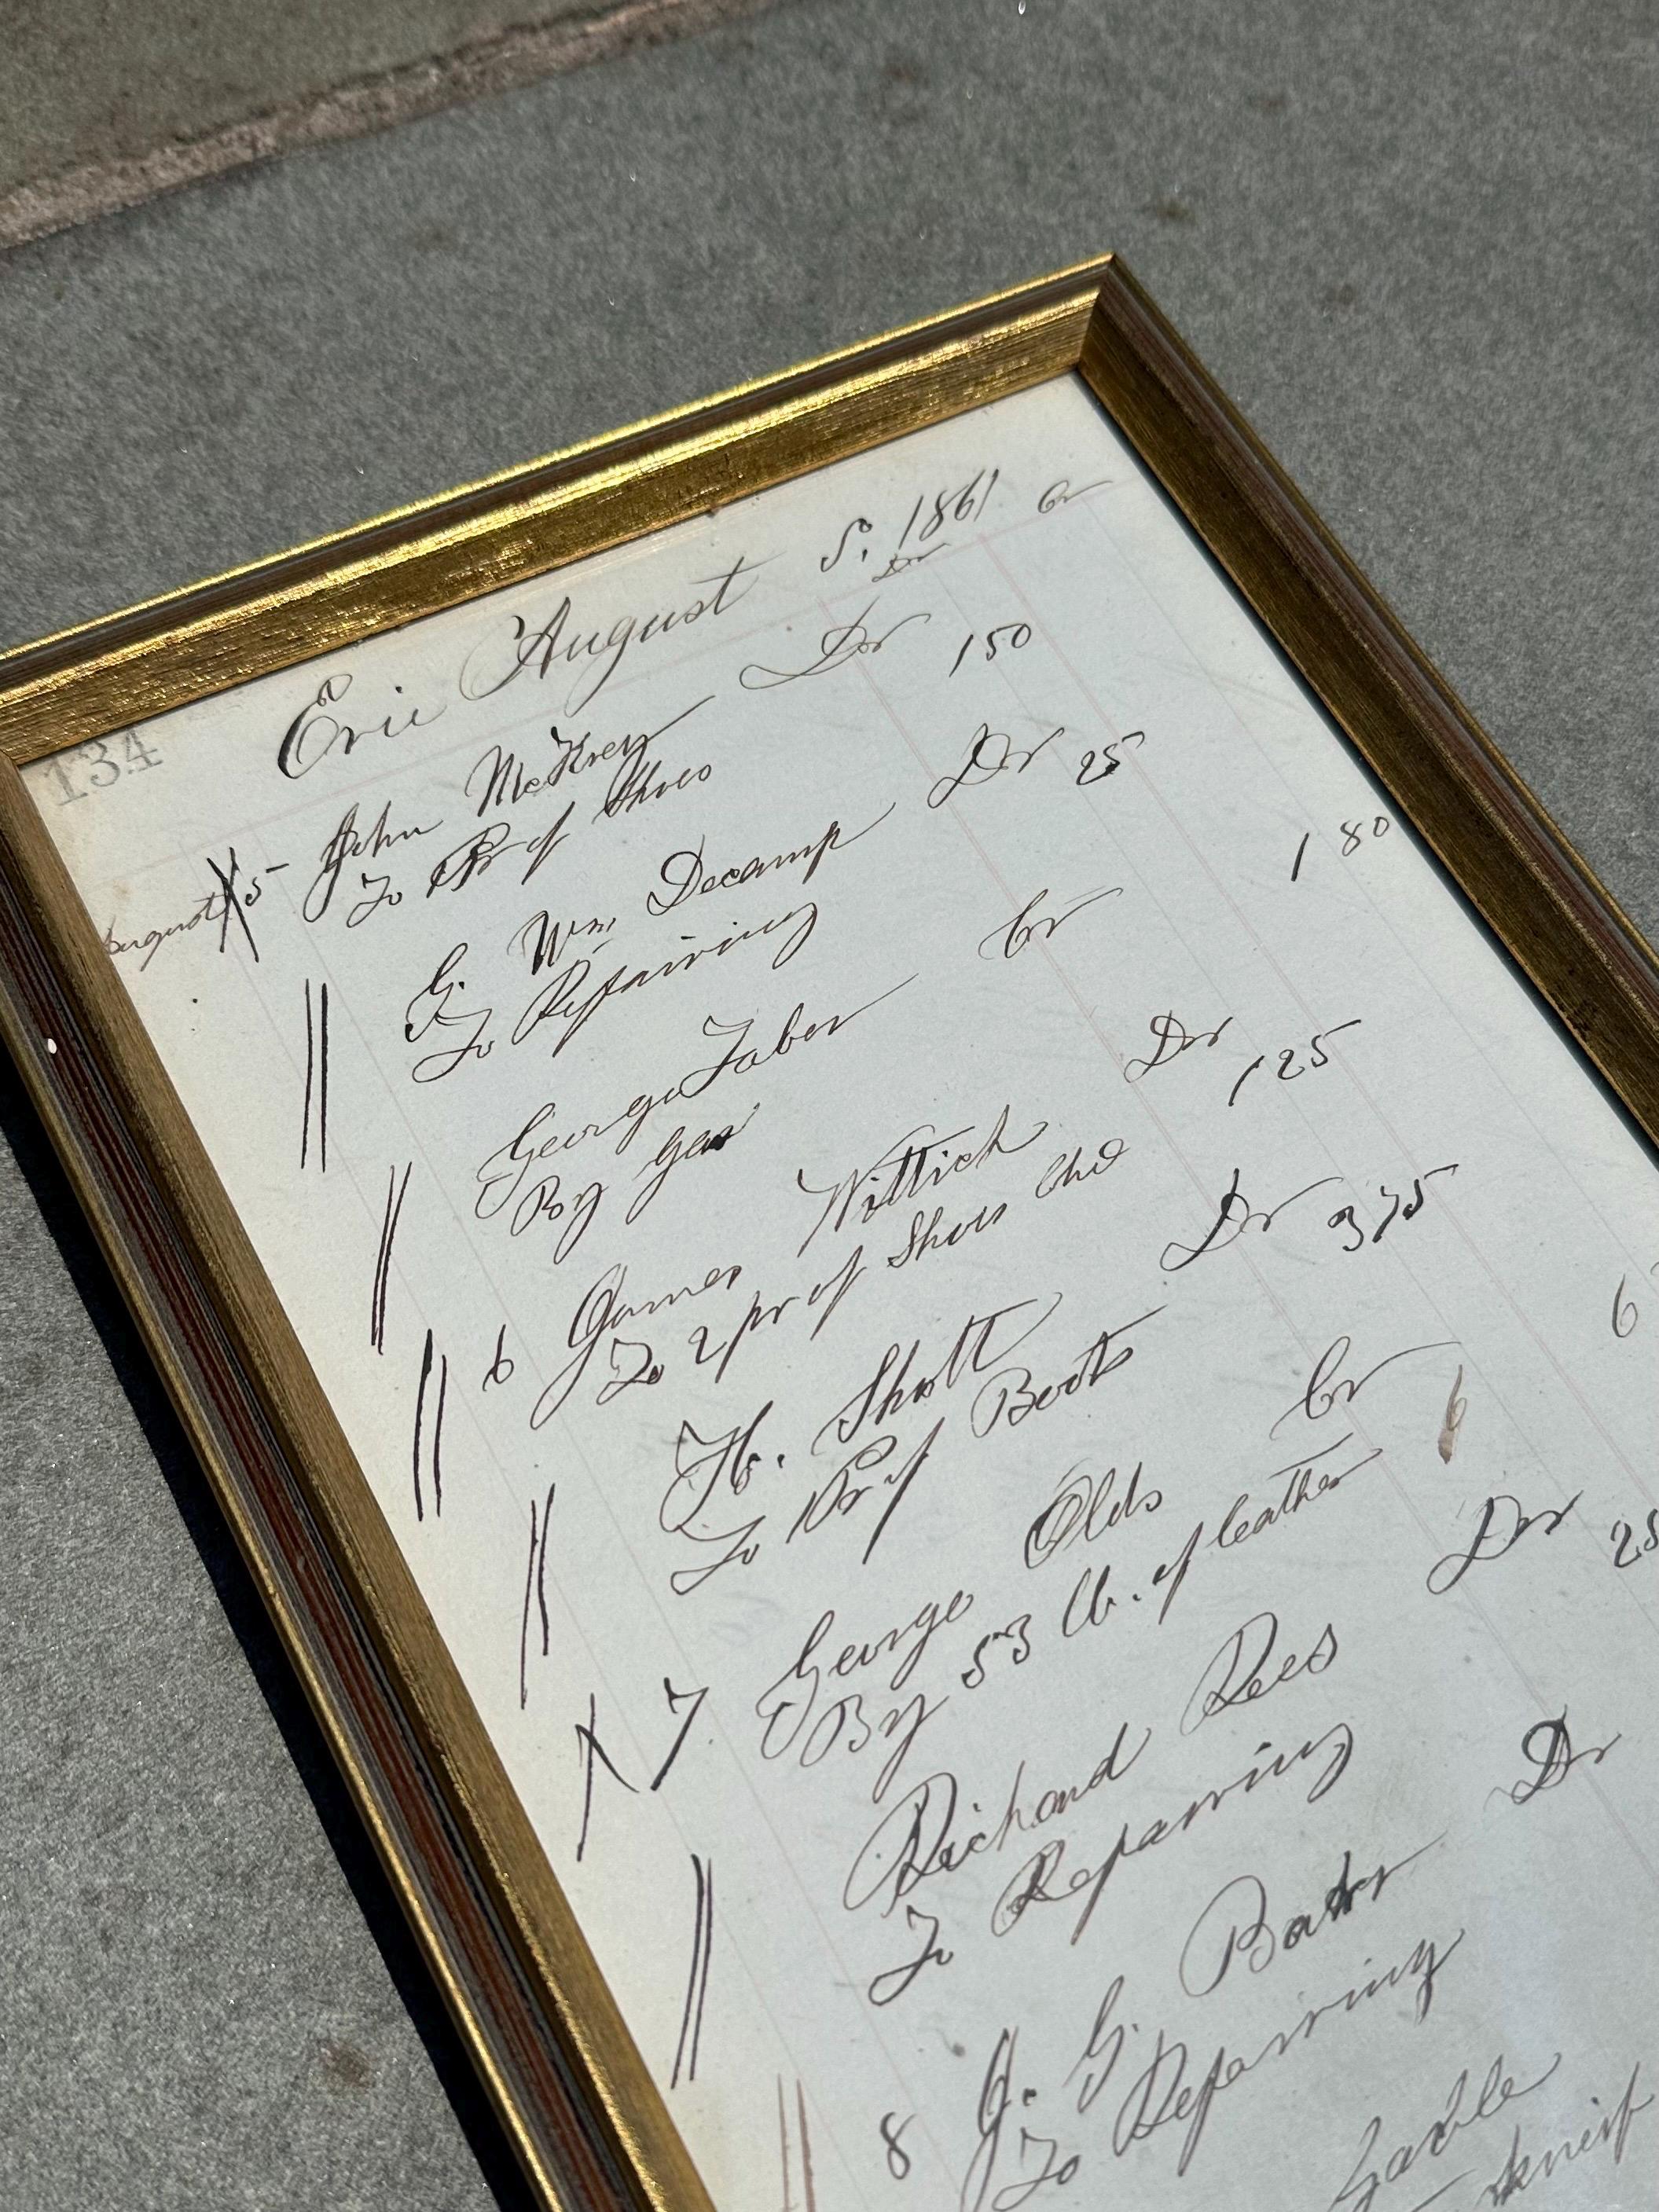 134
Erie August 5, 1861
Dr Cr
August 5 John McKrey Dr 150
To 1 Pr of Shoes
" G. Wm. Decamp Dr 25
To Repairing
" George Taber Cr 1 80
By gas
" 6 James Wittich Dr
To 2 pr of Shoes Chd 125
" H. Shott Dr 375
To 1 Pr of Boots
7. George Olds Cr 6
By 53 lb. of leather 6
" Richard Rees Dr 25
To Repairing
" 8 J. G. Dr
To Repairing